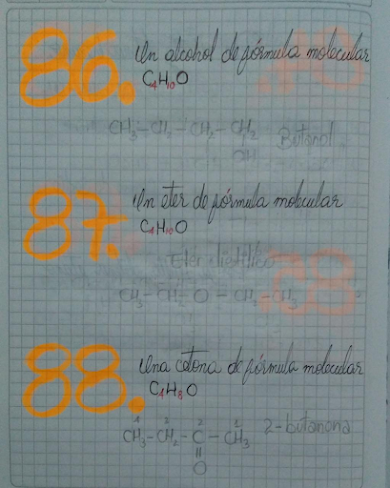 86. Un alcohol de fórmula molecular
C4H10O
CH3-CH2-CH2-CH2 Butanol
OH
87. Un éter de fórmula molecular
C4H10O
Eter dietílico
CH3-CH2-O-CH2-CH3
88. Una cetona de fórmula molecular
C4H8O
CH3-CH2-C-CH3 2-butanona
O